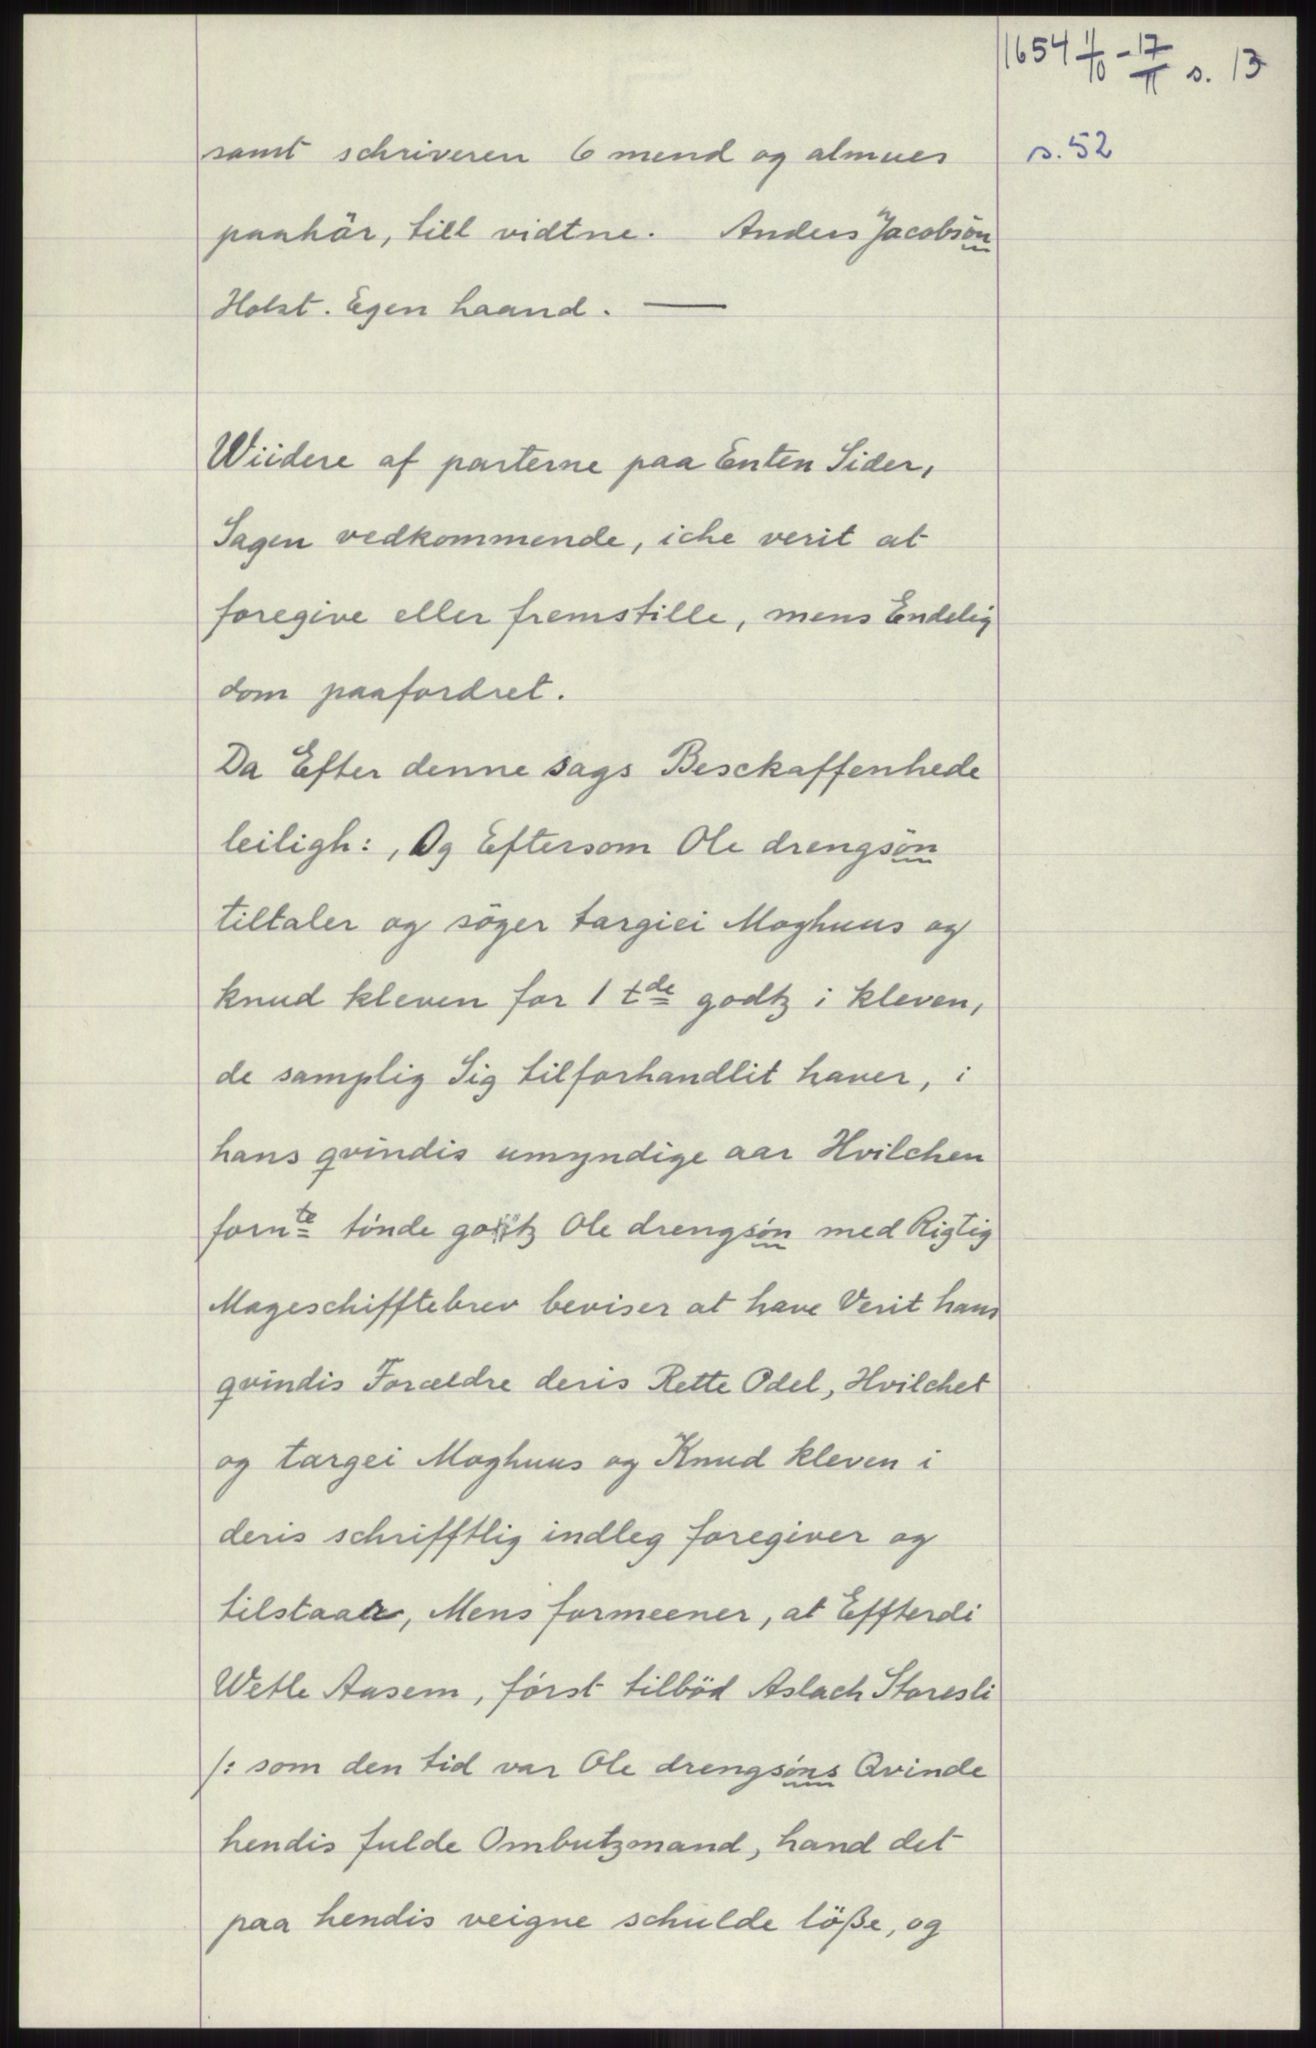 1654 11/10 - 17/11 s. 13
samt schriveren 6 mend og almues
s. 52
paahör, till vidtne. Anders Jacobsön
Holst. Egen haand. —
Wiidere af parterne paa Enten Sider,
Sagen vedkommende, iche verit at
foregive eller fremstille, mens Endelig
dom paafordret.
Da Efter denne sags Besckaffenhede
leiligh:, Og Eftersom Ole drengsön
tiltaler og söger targiei Moghuus og
knud kleven for 1 tde godtz i kleven,
de samplig Sig tilforhandlit haver, i
hans qvindis umyndige aar Hvilchen
fornte tónde godtz Ole drengsón med Rigtig
Mageschifftebrev beviser at have Verit hans
qvindis Forældre deris Rette Odel, Hvilchet
og targei Moghuus og Knud kleven i
deris schrifftlig indleg foregiver og
tilstaar, Mens formeener, at Effterdi
Wetle Aasem, fórst tilböd Aslach Storesli
/: som den tid var Ole drengsóns Qvinde
hendis fulde Ombutzmand, hand det
paa hendis veigne schulde löße, og